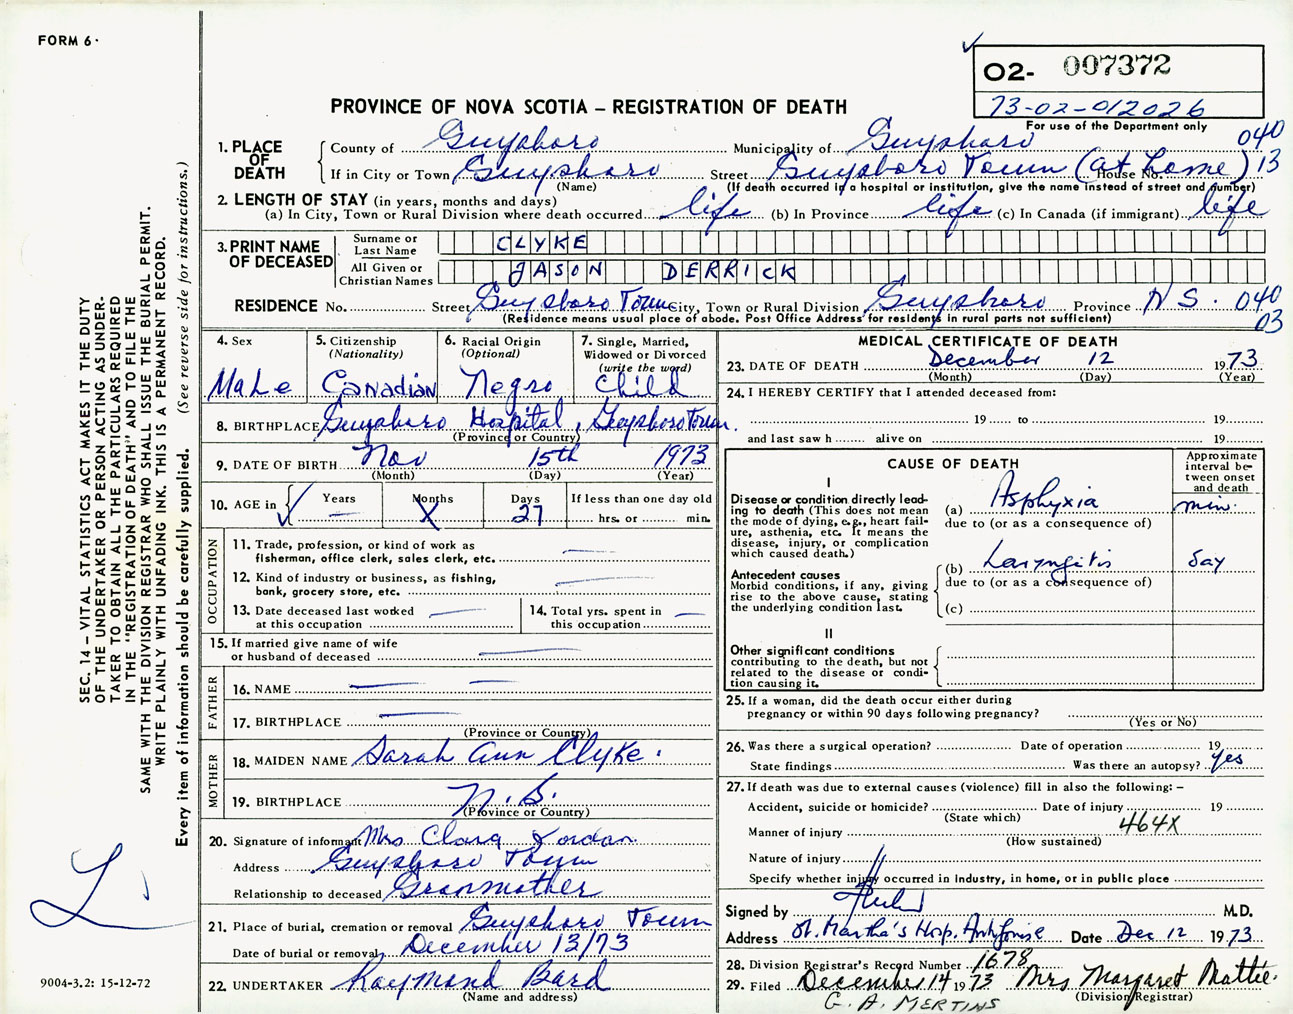 FORM 6.
O2- 007372
73-02-012026
For use of the Department only
PROVINCE OF NOVA SCOTIA – REGISTRATION OF DEATH
040
13
1. PLACE OF DEATH
County of Guysboro Municipality of Guysboro
If in City or Town Guysboro Street Guysboro Town (at home) House No.
(Name) (If death occurred in a hospital or institution, give the name instead of street and number)
2. LENGTH OF STAY (in years, months and days)
(a) In City, Town or Rural Division where death occurred life (b) In Province life (c) In Canada (if immigrant) life
3. PRINT NAME OF DECEASED
Surname or Last Name CLYKE
All Given or Christian Names JASON DERRICK
RESIDENCE No. Street Guysboro Town City, Town or Rural Division Guysboro Province N S. 040
03
(Residence means usual place of abode. Post Office Address for residents in rural parts not sufficient)
4. Sex
Male
5. Citizenship
(Nationality)
Canadian
6. Racial Origin
(Optional)
Negro
7. Single, Married, Widowed or Divorced
(write the word)
Child
8. BIRTHPLACE Guysboro Hospital, Guysboro Town.
(Province or Country)
9. DATE OF BIRTH Nov 15th 1973
(Month) (Day) (Year)
10. AGE in Years Months Days If less than one day old
— X 27 hrs. or min.
OCCUPATION
11. Trade, profession, or kind of work as fisherman, office clerk, sales clerk, etc. —
12. Kind of industry or business, as fishing, bank, grocery store, etc. —
13. Date deceased last worked at this occupation —
14. Total yrs. spent in this occupation —
15. If married give name of wife or husband of deceased —
FATHER
16. NAME — —
17. BIRTHPLACE —
(Province or Country)
MOTHER
18. MAIDEN NAME Sarah Ann Clyke.
19. BIRTHPLACE N. S.
(Province or Country)
20. Signature of informant Mrs Clara Jordan
Address Guysboro Town
Relationship to deceased Granmother
21. Place of burial, cremation or removal Guysboro Town
Date of burial or removal December 13/73
22. UNDERTAKER Raymond Bard
(Name and address)
MEDICAL CERTIFICATE OF DEATH
23. DATE OF DEATH December 12 1973
(Month) (Day) (Year)
24. I HEREBY CERTIFY that I attended deceased from:
19 to 19
and last saw h alive on 19
CAUSE OF DEATH
Approximate interval between onset and death
I
Disease or condition directly leading to death (This does not mean the mode of dying, e.g., heart failure, asthenia, etc. It means the disease, injury, or complication which caused death.)
(a) Asphyxia min.
due to (or as a consequence of)
Antecedent causes
Morbid conditions, if any, giving rise to the above cause, stating the underlying condition last.
(b) Laryngitis day
due to (or as a consequence of)
(c)
II
Other significant conditions contributing to the death, but not related to the disease or condition causing it.
25. If a woman, did the death occur either during pregnancy or within 90 days following pregnancy?
(Yes or No)
26. Was there a surgical operation? Date of operation 19
State findings Was there an autopsy? yes
27. If death was due to external causes (violence) fill in also the following: –
Accident, suicide or homicide? Date of injury 19
(State which)
464X
Manner of injury
(How sustained)
Nature of injury
Specify whether injury occurred in industry, in home, or in public place
Signed by M.D.
Address St. Martha's Hosp. Antigonise Date Dec 12 1973
28. Division Registrar's Record Number 1678
29. Filed December 14 1973 Mrs Margaret Mattie.
(Division Registrar)
G. A. MERTINS
SEC. 14 – VITAL STATISTICS ACT MAKES IT THE DUTY
OF THE UNDERTAKER OR PERSON ACTING AS UNDER-
TAKER TO OBTAIN ALL THE PARTICULARS REQUIRED
IN THE "REGISTRATION OF DEATH" AND TO FILE THE
SAME WITH THE DIVISION REGISTRAR WHO SHALL ISSUE THE BURIAL PERMIT.
WRITE PLAINLY WITH UNFADING INK. THIS IS A PERMANENT RECORD.
Every item of information should be carefully supplied. (See reverse side for instructions.)
9004-3.2: 15-12-72